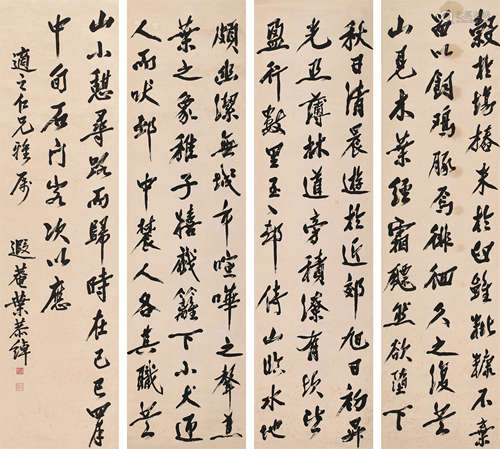 穀於場舂米於臼雖秕糠不棄
留以飼鷄豚焉徘徊久之復登
山見木葉經霜飄然欲墮下
秋日清晨遊於近郊旭日初昇
光照薄林道旁積潦有
盈行數里至一邨倚山臨水地
頗幽潔無城市喧嘩之聲
葉之象稚子嬉戲籬下小犬迎
人而吠邨中農人各其職業
山小憩尋路而歸時在己巳
中旬石門客次以應
適之仁兄雅屬
遐菴葉恭綽